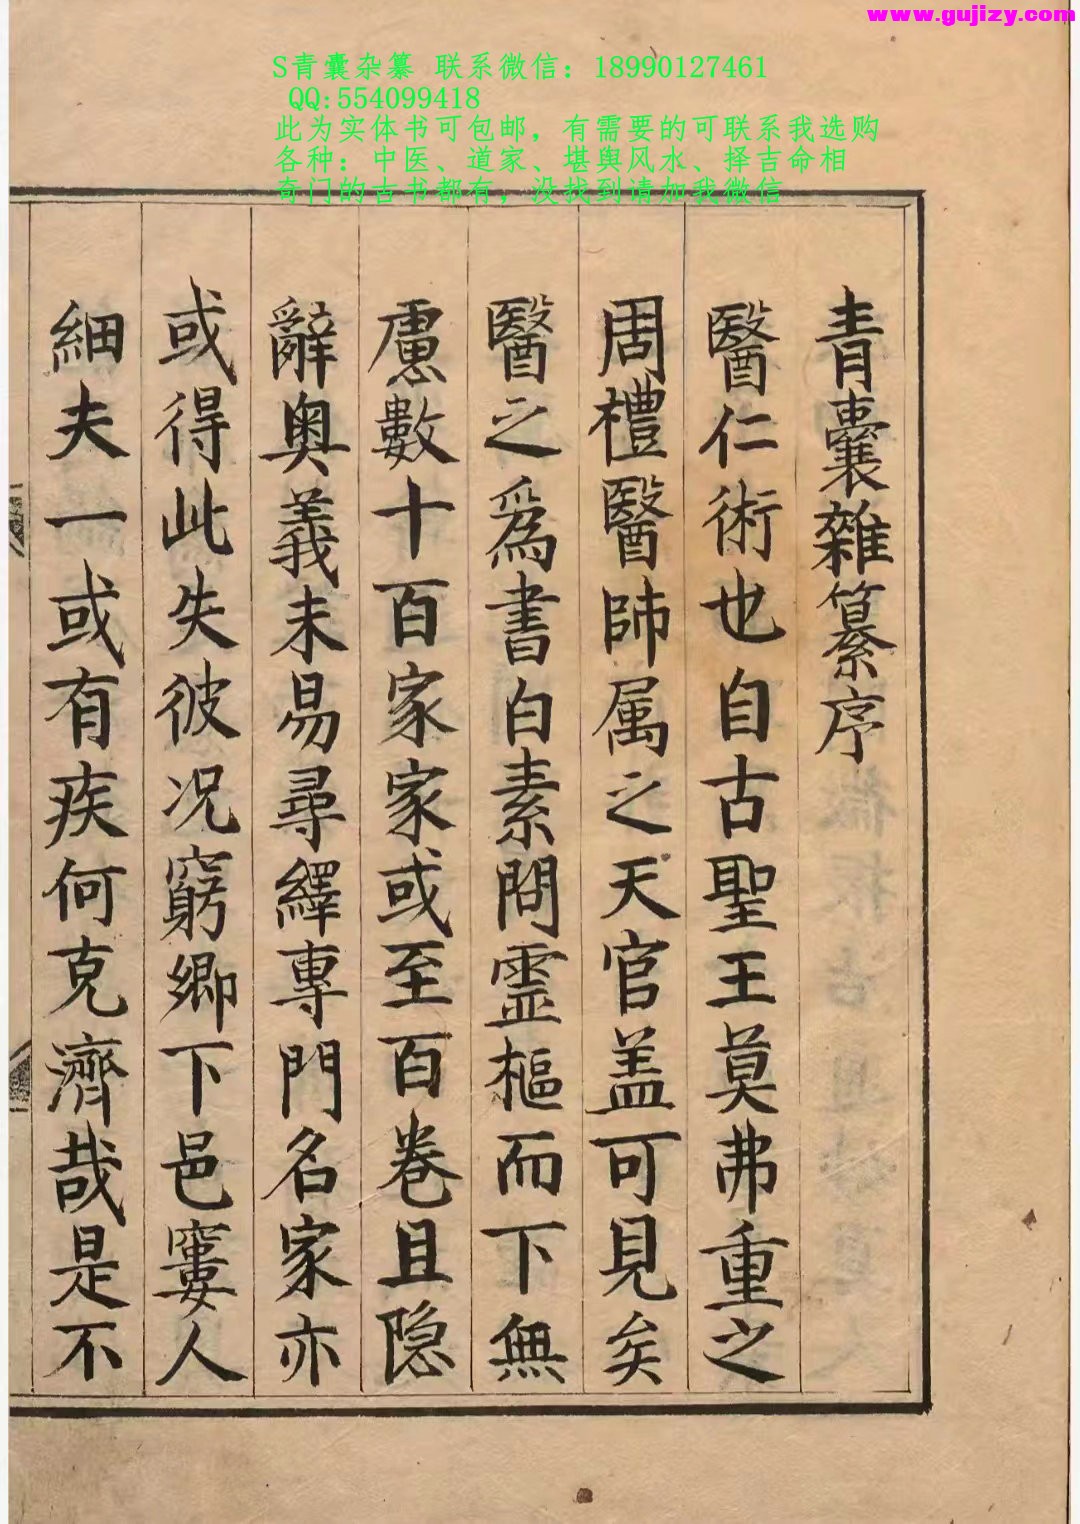 www.gujizy.com
S青囊杂纂 联系微信：18990127461
QQ:554099418
此为实体书可包邮，有需要的可联系我选购
各种：中医、道家、堪舆风水、择吉命相
奇门的古书都有，没找到请加我微信
青囊雜纂序
醫仁術也自古聖王莫弗重之
周禮醫師属之天官盖可見矣
醫之為書自素問霊樞而下無
慮數十百家家或至百卷且隐
辭奥義未易尋繹專門名家亦
或得此失彼况窮鄉下邑窶人
細夫一或有疾何克濟哉是不